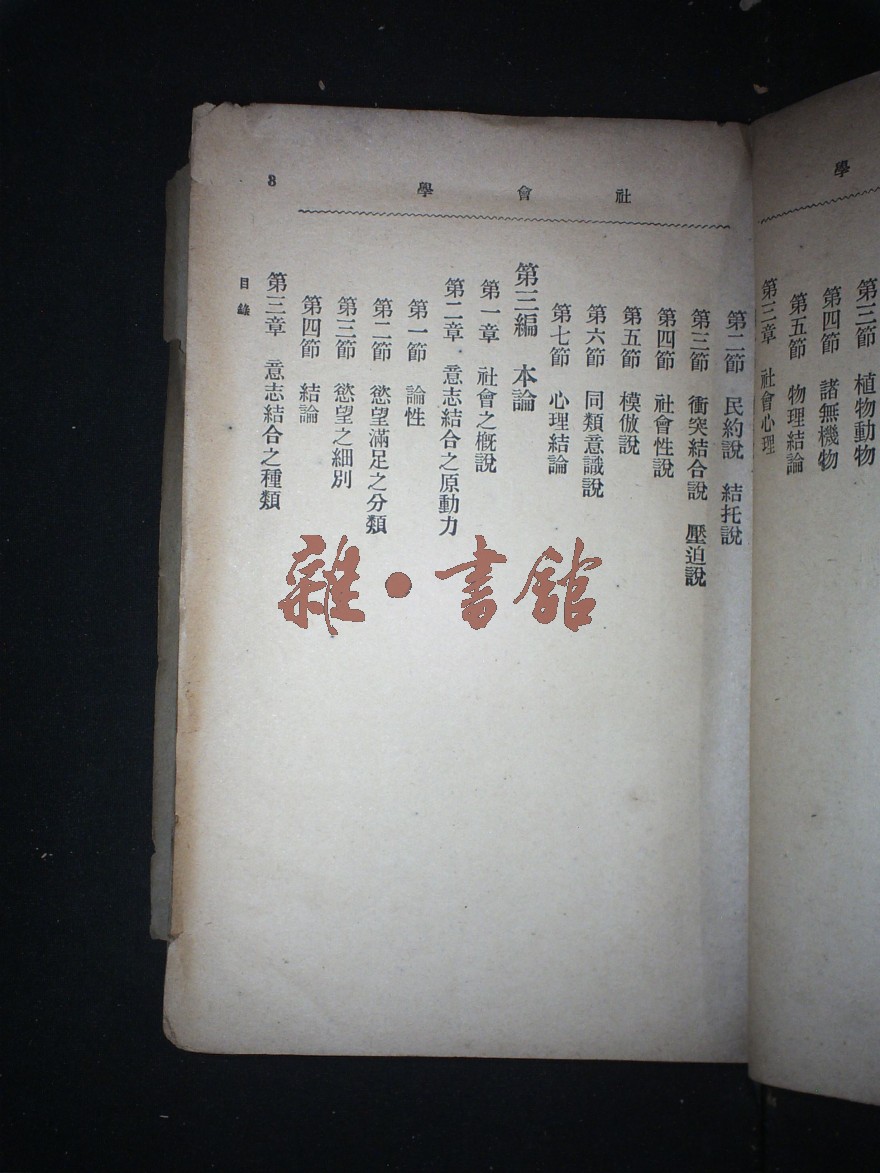 學
第三節 植物動物
第四節 諸無機物
第五節 物理結論
第三章 社會心理
社會學
第二節 民約說 結托說
第三節 衝突結合說 壓迫說
第四節 社會性說
第五節 模倣說
第六節 同類意識說
第七節 心理結論
第三編 本論
第一章 社會之概說
第二章 意志結合之原動力
第一節 論性
第二節 慾望滿足之分類
第三節 慾望之細別
第四節 結論
第三章 意志結合之種類
目錄
3
雜·書館